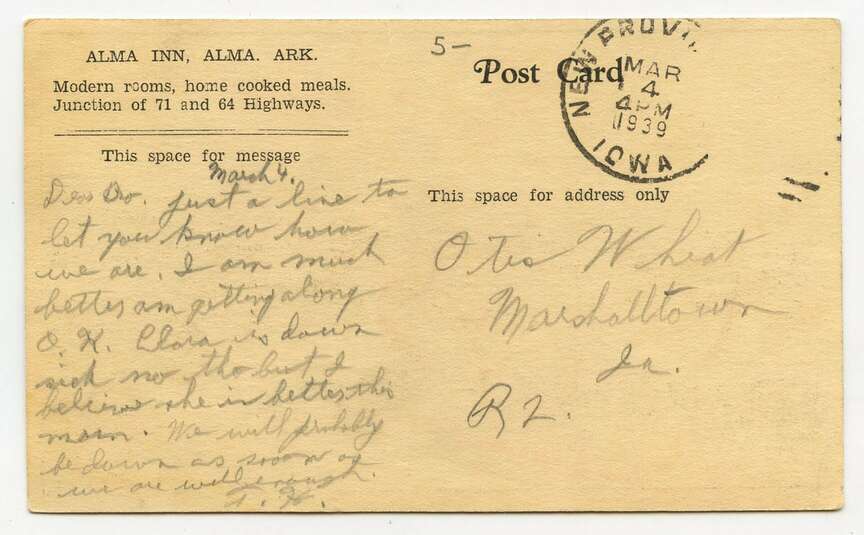 ALMA INN, ALMA. ARK.
Modern rooms, home cooked meals.
Junction of 71 and 64 Highways.
This space for message
March 4.
Dear Bro. Just a line to
let you know how
we are. I am much
better am getting along
O. K. Clara is down
sick no tho but I
believe she is better this
morn. We will probably
be down as soon as
we are well enough.
5-
Post Card
NEW PROVI
MAR
4
4PM
1939
IOWA
This space for address only
Otis Wheat
Marshalltown
Ia.
R 2.